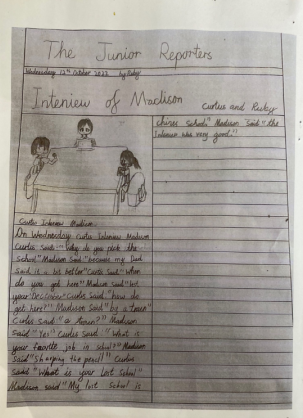 The Junior Reporters
Wednesday 12th October 2022 by Ruby
Inteniew of Madison
Curtis and Ruby
Curtis Inteniew Madison
On Wednesday Curtis Inteniew Madison
Curtis said "Why do you pick the
school" Madison said "because my Dad
said is a bit better" Curtis said "when
do you get here" Madison said "last
year December" Curtis said "how do
get here?" Madison said "by a town"
Curtis said "a town?" Madison
said "Yes" Curtis said "what is
your favorite job in school?" Madison
said "Sharping the pencil" Curtis
said "What is your last school"
Madison said "My last school is
school" Madison said "the
Inteniew was very good."